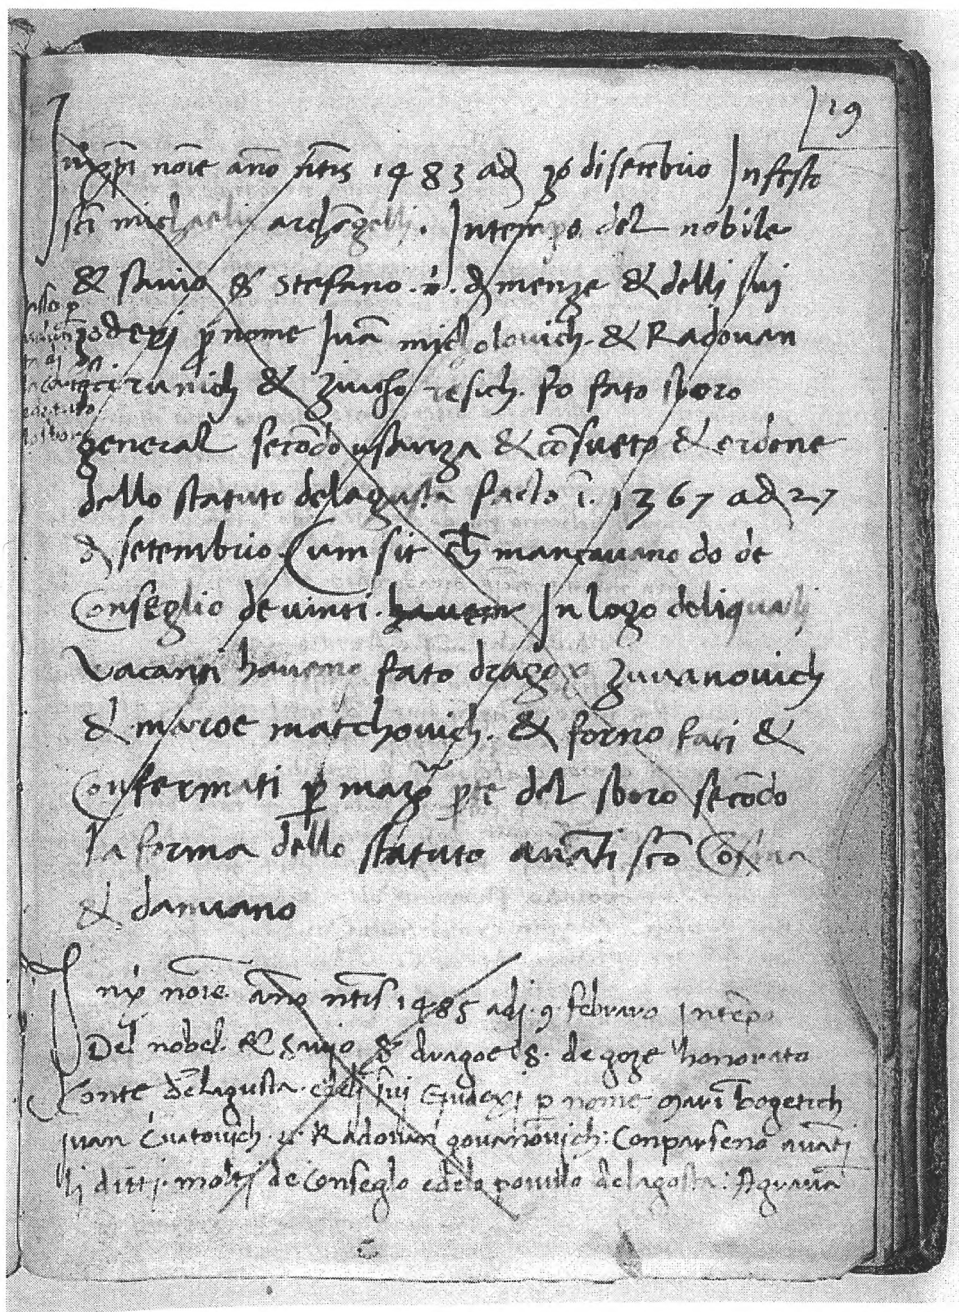 19
In xpi noie año ntis 1483 adj p° di setembrio In festo
sci michaelis archãgelli. In tempo del nobile
& savio S stefano .v. d menze & delli sui
zodexj p nome Ivã micholovich. & Radovan
& zivcho resich. fo fato sboro
general secõdo usanza & cõsueto & erdene
dello statuto delagusta facto ĩ. 1367 adj 27
d setembrio. Cum sit ch mancavano do de
Conseglio de vinti. In logo deliquali
vacanti havemo fato dragoe zuvanovich
& maroe matchovich. & forno fati &
Confermati p mazor pte del sboro secõdo
la forma dello statuto avãti sco Cosma
& damiano
In xp noie. año ntis 1485 adj. 9 febraro Intẽpo
Del nobel. & savio S dragoe S. de goze honorato
Conte delagusta. edelj sui Gjudexj p nome marĩ bogetich
ivan Cvitovich. & Radovan govanovich: Conparseno avãti
li ditti. moltj de Conseglo edelo povullo delagosta: